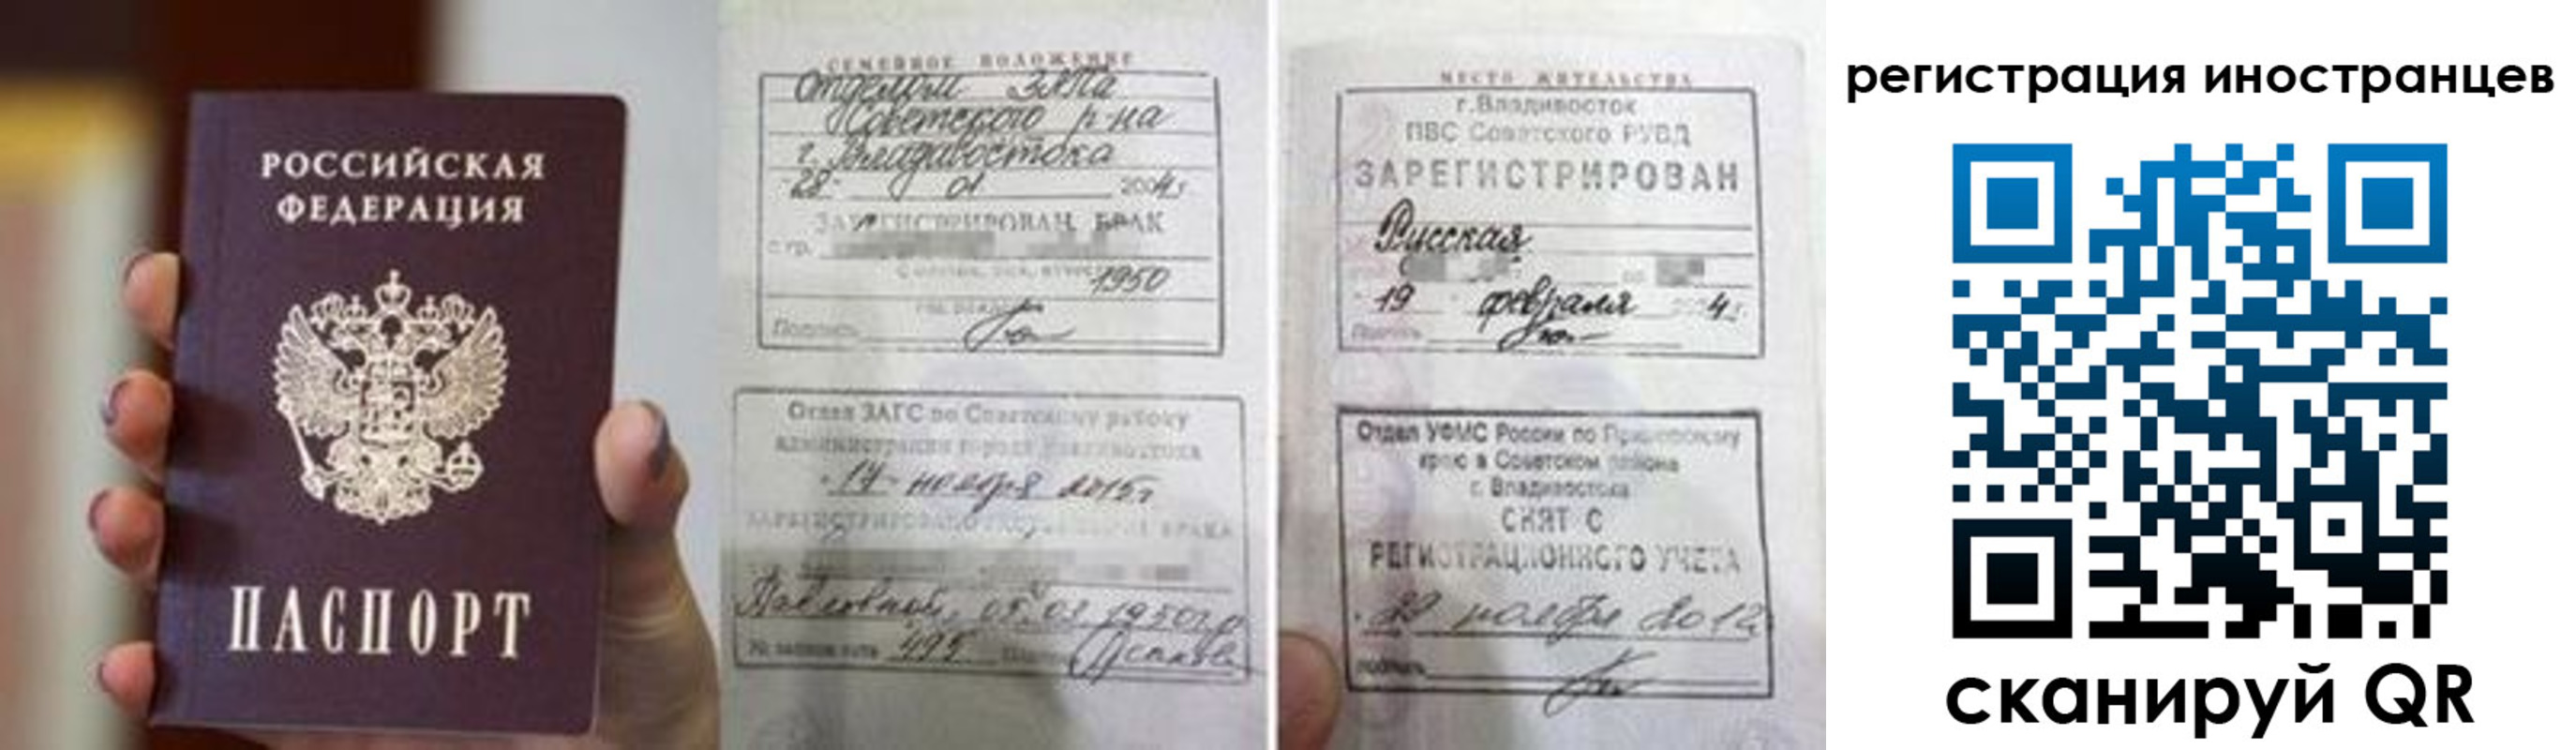 РОССИЙСКАЯ
ФЕДЕРАЦИЯ
ПАСПОРТ
СЕМЕЙНОЕ ПОЛОЖЕНИЕ
Отделом ЗАГСа
Советского р-на
г. Владивостока
"28" 01 2004 г.
ЗАРЕГИСТРИРОВАН БРАК
с гр.
1950
Подпись
Отдел ЗАГС по Советскому району
администрации города Владивостока
"17" ноября 2015г
БРАКА
Павловной, 05.03.1950г.р
№ записи акта 495
МЕСТО ЖИТЕЛЬСТВА
г.Владивосток
ПВС Советского РУВД
ЗАРЕГИСТРИРОВАН
Русская
19 февраля 4г
Подпись
Отдел УФМС России по Приморскому
краю в Советском районе
г. Владивостока
СНЯТ С
РЕГИСТРАЦИОННОГО УЧЕТА
ноября 2012
подпись
регистрация иностранцев
сканируй QR